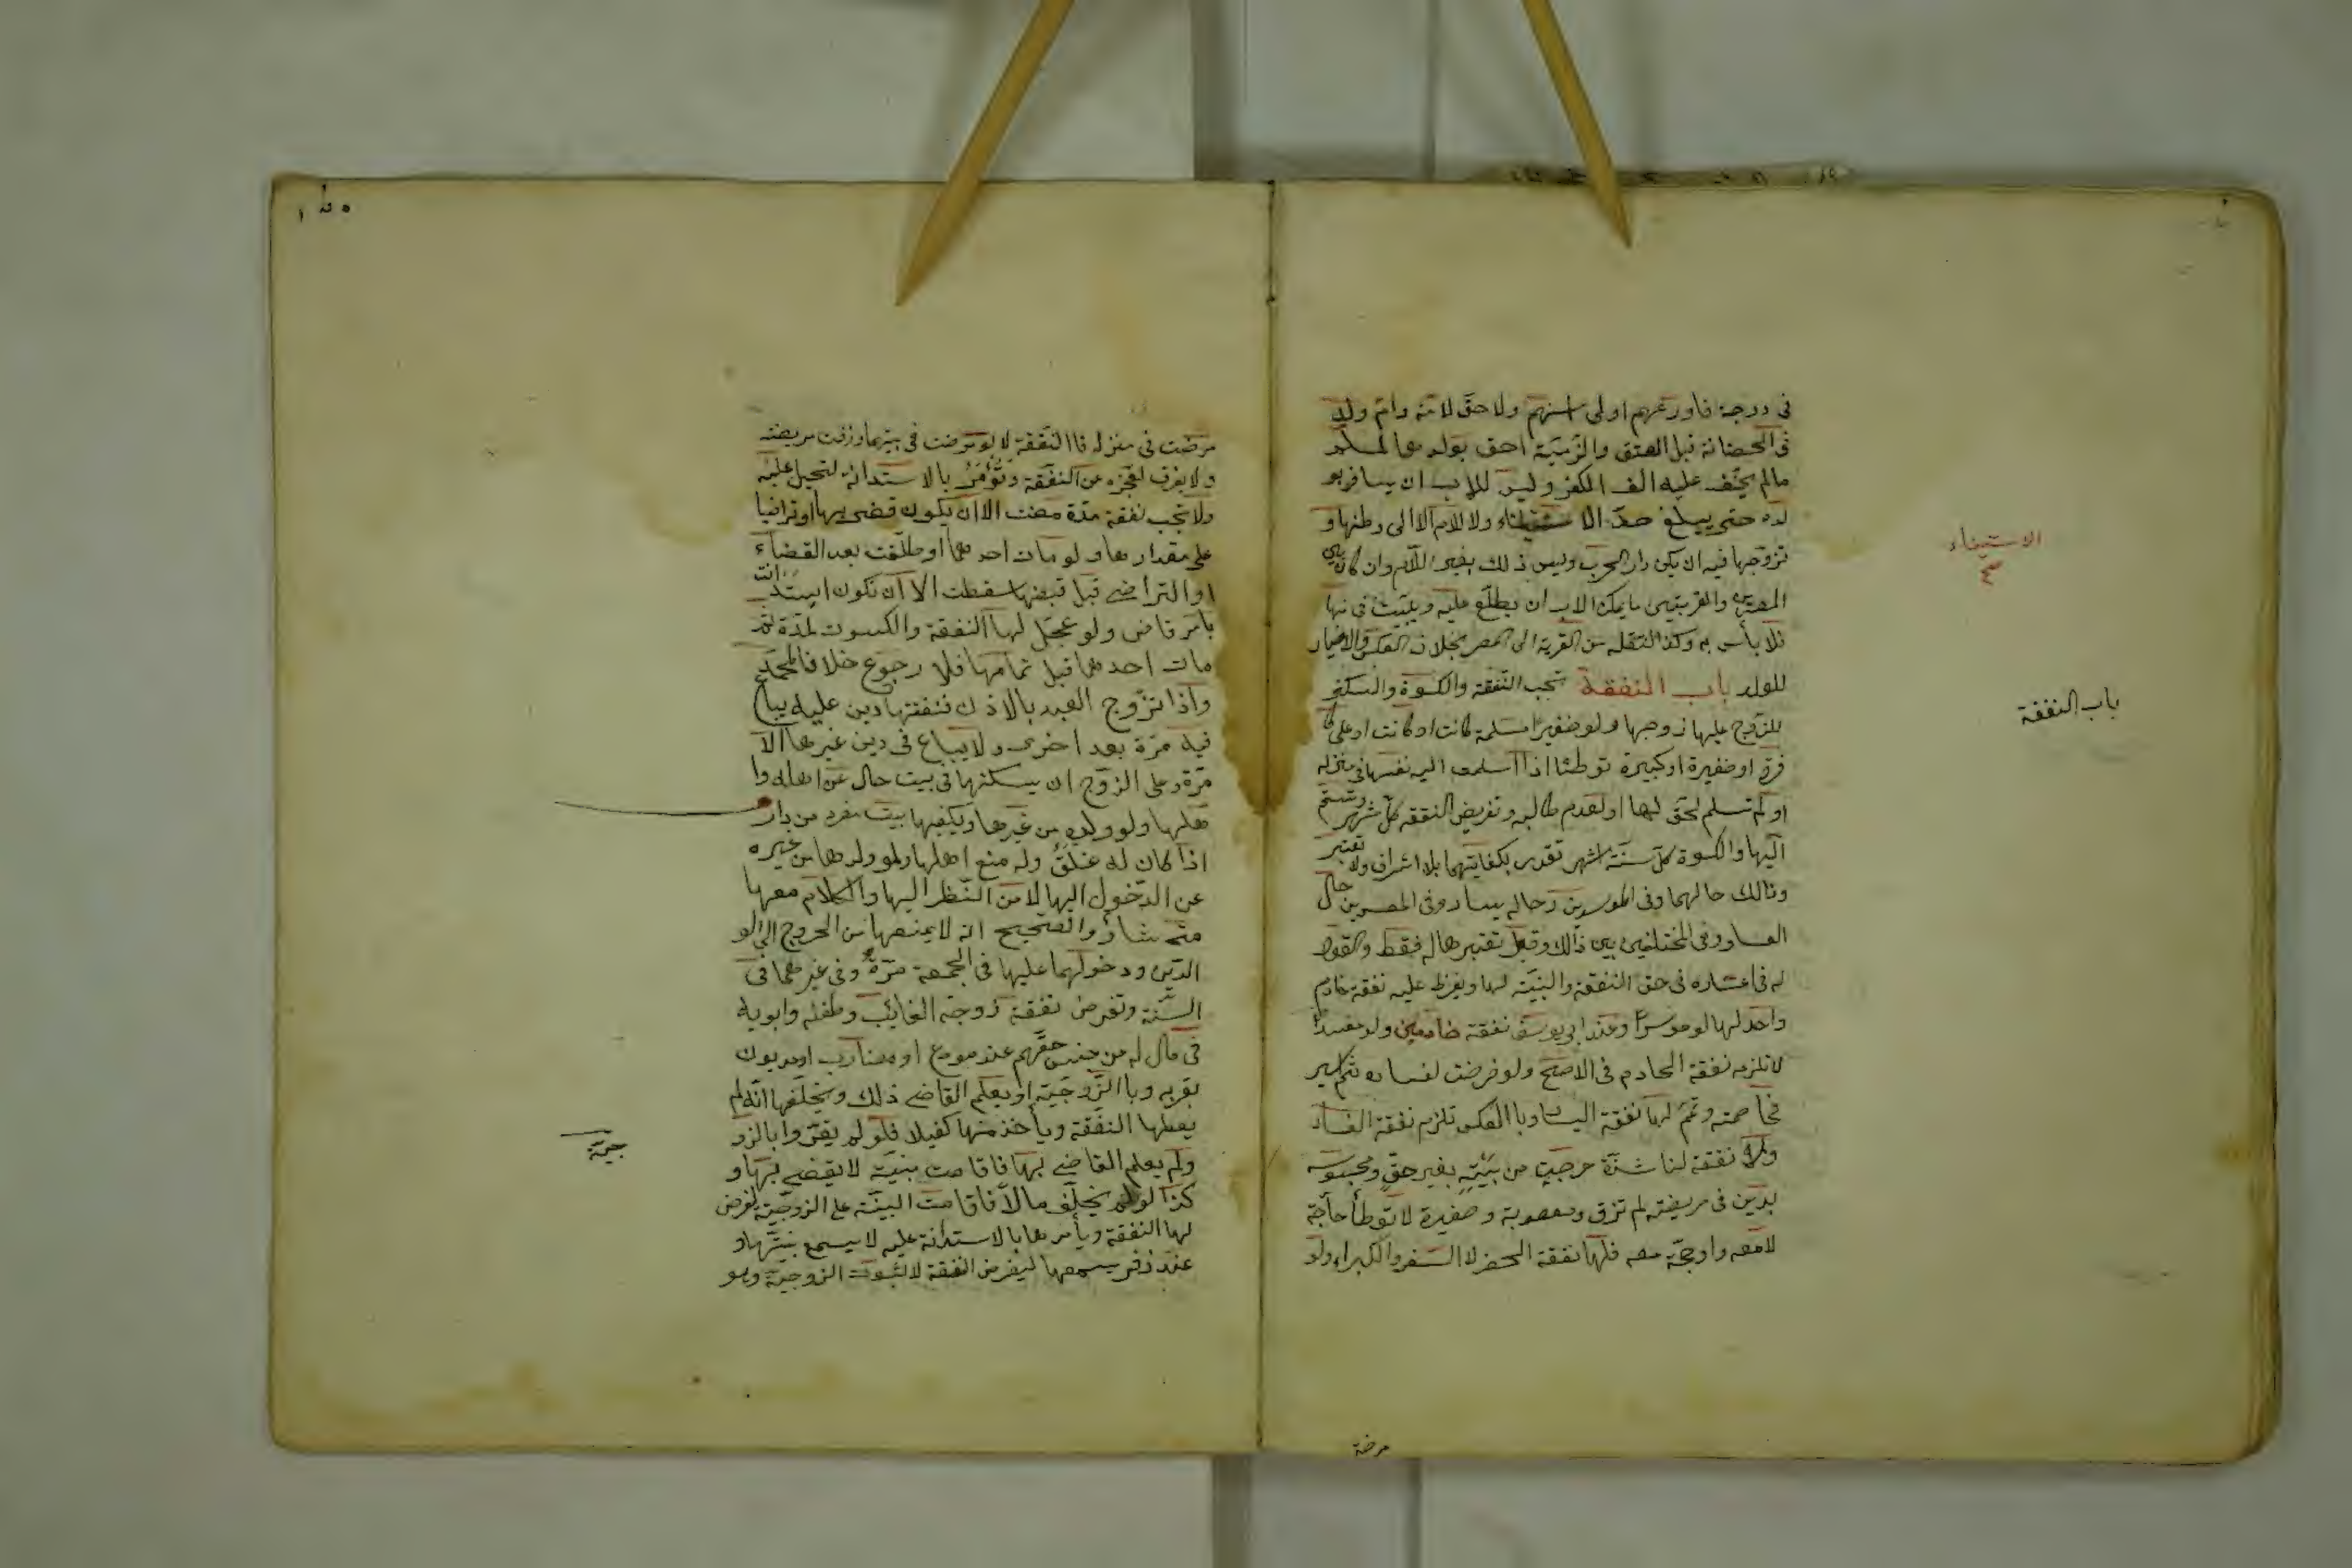 فى درجة فاورعهم اولى اسنهم ولا حق لامة وام ولد
فى الحضانة قبل العتق والذمية احق بولدها المسلم
مالم يخف عليه الف الكفر وليس للاب ان يسافر بو
لده حتى يبلغ حد الاستغناء ولا للام الا الى وطنها و
تزوجها فيه ان يكن دار الحرب وليس ذلك لغير الام وان كان بين
المصرين والقريتين ما يمكن الاب ان يطلع عليه ويبيت فى
فلا بأس به وكذا النقلة من القرية الى المصر بخلاف العكس والاخيار
للولد باب النفقة تجب النفقة والكسوة والسكنى
للزوج عليها زوجها ولو صغيرا مسلمة كانت او كانت او على
فرة او صغيرة او كبيرة توطئا اذا اسلمت اليه نفسها فى منزله
او لم تسلم لحق لها او لعدم طالبه وتفرض النفقة كل شهر وتسلم
اليها والكسوة كل ستة اشهر تقدر بكفايتها بلا اسراف ولا تعتبر
وذالك حالهما وفى الموسرين حاله يسار وفى المعسرين حال
العسار وفى المختلفين بين ذالك وقيل تعتبر حاله فقط والقول
له فى اعساره فى حق النفقة والبينة لها ويفرض عليه نفقة خادم
واحد لها لو موسرا وعند ابى يوسف نفقة خادمين ولو معسرا
لا تلزمه نفقة الخادم فى الاصح ولو فرضت لعساره ثم ايسر
فخاصمته وتمم لها نفقة اليسار وبا العكس تلزم نفقة العسار
ولا نفقة لناشزة خرجت من بيته بغير حق ومحبوسة
بدين فى مريضة لم تزق ومغصوبة وصغيرة لا توطأ حاجة
لا معه ولو حجة معه فلها نفقة الحضر لا السفر والكراء ولو
الاستيناء
باب النفقة
مرضة
مرضت فى منزله فا النفقة لا لو مرضت فى بيتها وزفت مريضة
ولا يفرق لعجزه عن النفقة وتؤمر بالاستدانة لتحيل عليه
ولا تجب نفقة مدة مضت الا ان يكون قضى بها او تراضيا
على مقدارها ولو مات احدهما او طلقت بعد القضاء
او التراضى قبل قبضها سقطت الا ان تكون استدانت
بامر قاض ولو عجل لها النفقة والكسوت لمدة ثم
مات احدهما قبل تمامها فلا رجوع خلافا لمحمد
واذا تزوج العبد بالاذن فنفقتها دين عليه يباع
فيه مرة بعد اخرى ولا يباع فى دين غيرها الا
مرة وعلى الزوج ان يسكنها فى بيت خال عن اهله وا
هلها ولو ولده من غيرها ويكفيها بيت مفرد من دار
اذا كان له غلق وله منع اهلها ولو ولدها من غيره
عن الدخول اليها لا من النظر اليها والكلام معها
متى شاؤ والصحيح انه لا يمنعها من الخروج الى الو
الدين ودخولهما عليها فى الجمعة مرة وفى غيرهما فى
السنة وتفرض نفقة زوجة الغائب وطفله وابويه
فى مال له من جنس حقهم عند مودع او مضارب او مديون
يقر به وبا الزوجية او يعلم القاضى ذلك ويحلفها انه لم
يعطها النفقة ويأخذ منها كفيلا فلو لم يقروا بالزو
ولم يعلم القاضى بها فاقامت بينة لا يقضى بها و
كذا لو لم يخلف مالا فاقامت البينة على الزوجية ليفرض
لها النفقة ويأمرها بالاستدانة عليه لا يسمع بينتها و
عند زفر يسمعها ليفرض النفقة لا لثبوت الزوجية وهو
جية